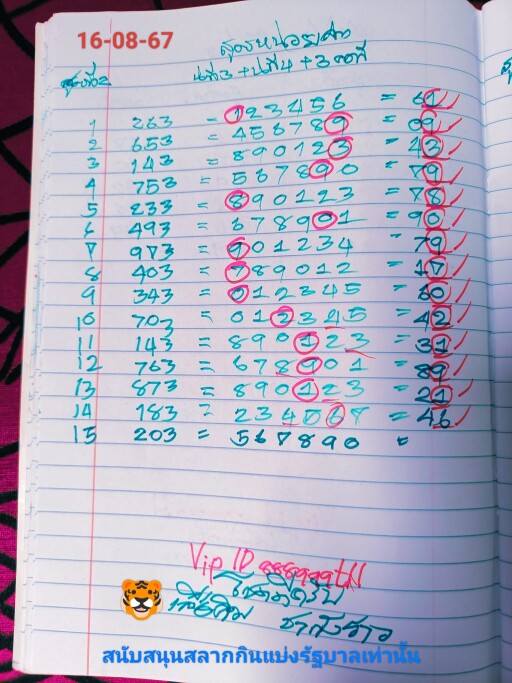 16-08-67
สูตรหน่วยล่าง
นที่3+ปที่4+3 จดที่
สูตรที่2
1 263 = 123456 = 61
2 653 = 456789 = 09
3 143 = 890123 = 43
4 753 = 567890 = 79
5 233 = 890123 = 78
6 493 = 678901 = 90
7 973 = 901234 = 79
8 403 = 789012 = 17
9 343 = 012345 = 60
10 703 = 012345 = 42
11 143 = 890123 = 31
12 763 = 678901 = 89
13 873 = 890123 = 21
14 183 = 234567 = 46
15 203 = 567890 =
Vip ID 888999tll
🐯
สนับสนุนสลากกินแบ่งรัฐบาลเท่านั้น